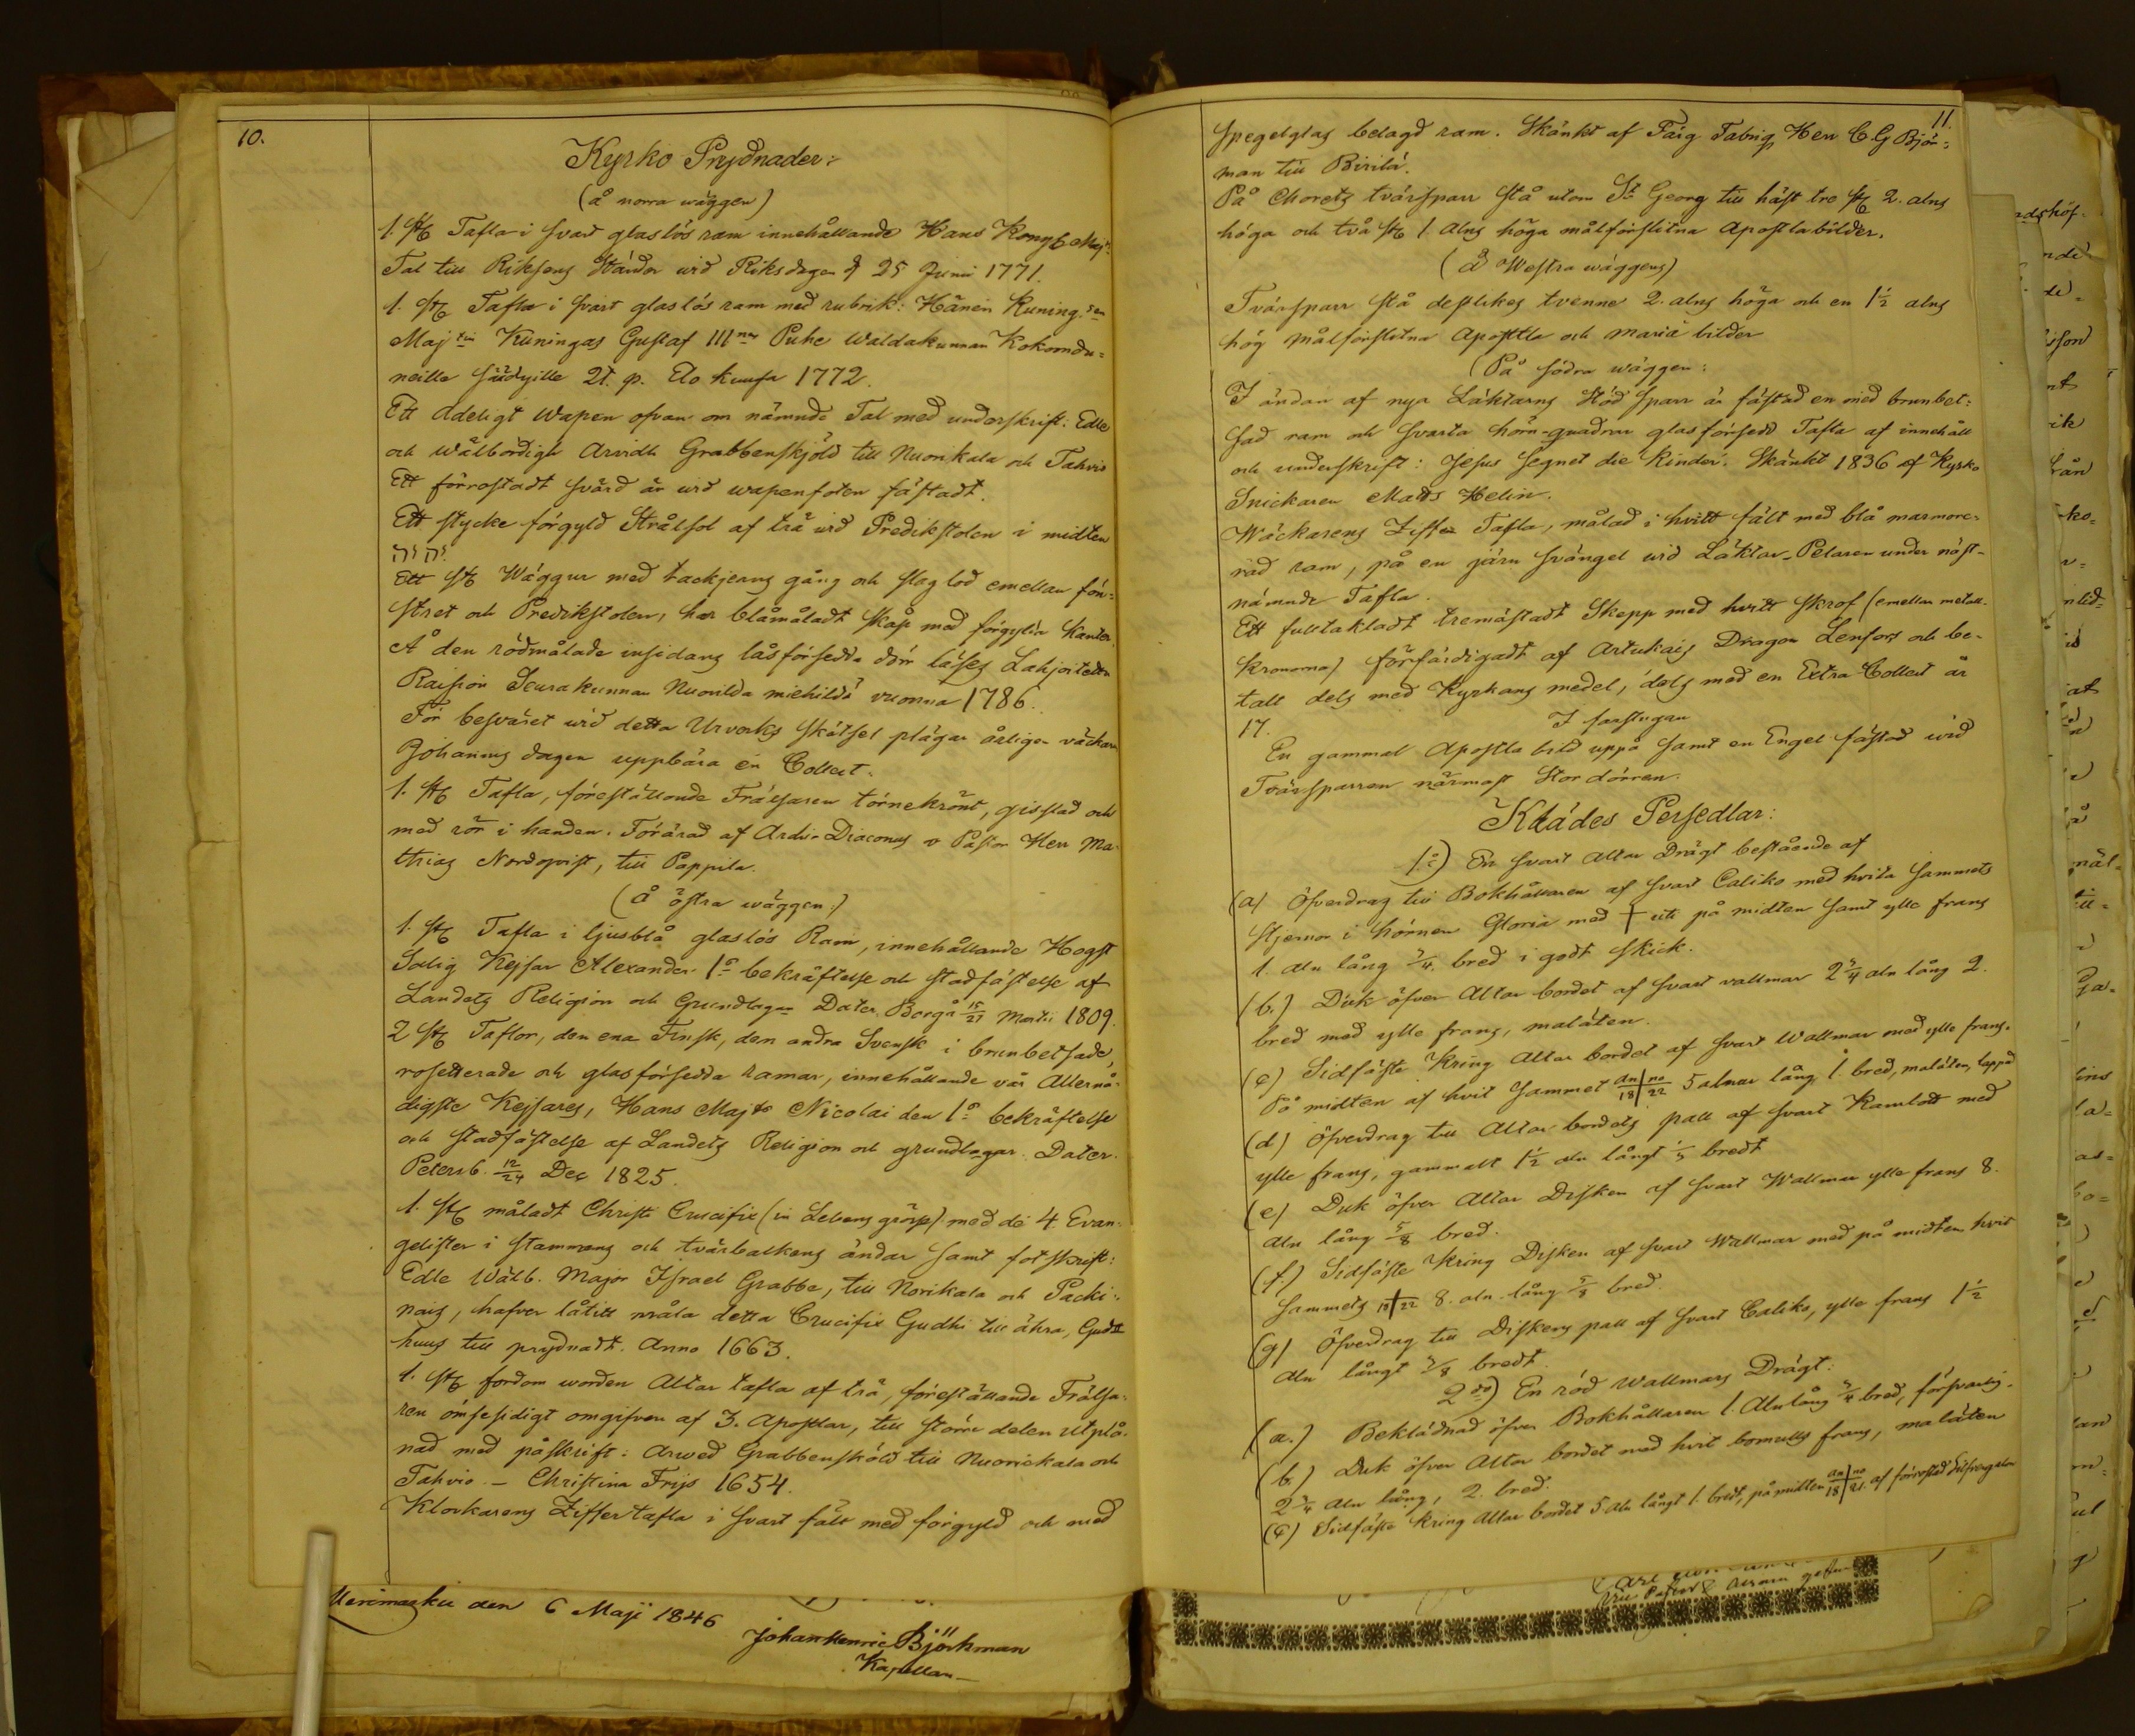 10.
Kyrko Prydnader:
(å norra wäggen)
1. st Tafla i svart glaslös ram innehållande Hans Kongl. Maj:ts
Tal till Riksens Ständer wid Riksdagen d 25 Junii 1771.
1. st Tafla i svart glaslös ram med rubrik: Hänen Kuning.sen
Maj:tin Kuningas Gustaf IIInen Puhe Waldakunnan Kokoondu=
neille Säädyille 21. p. Elo kuusa 1772.
Ett Adeligt Wapen ofvan om nämnde Tal med underskrift: Edle
och Wälbördigh Arvidh Grabbenskjöld till Nuorikala och Tahvio
Ett förrostadt svärd är wid wapenfoten fästadt.
Ett stycke förgyld Strålsol af trä wid Predikstolen i midten
יהוה
Ett st Wäggur med hackjerns gång och slag lod emellan fön=
stret och Predikstolen, har blåmåladt skåp med förgylda kanter.
Å den rödmålade insidans låsförsedda dörr läses Lahjoitettu
Raision Seurakunnan Nuorilda miehildä vuonna 1786.
För besväret wid detta Urverks skötsel plägar årligen väckaren
Johannis dagen uppbära en Collect.
1. st Tafla, föreställande Frälsaren törnekrönt, gisslad och
med rör i handen. Förärad af Archi-Diaconus o Pastor Herr Ma-
thias Nordqvist, till Pappila.
(å östra wäggen.)
1. st Tafla i ljusblå glaslös Ram, innehållande Högst
Salig Kejsar Alexander 1o bekräftelse och stadfästelse af
Landets Religion och Grundlagar Dater. Borgå 15/27 Martii 1809.
2 st Taflor, den ena Finsk, den andra Svensk i brunbetsade,
rosetterade och glasförsedda ramar, innehållande vår Allernå-
digste Kejsares, Hans Majts Nicolai den 1o bekräftelse
och stadfästelse af Landets Religion och grundlagar. Dater.
Petersb. 12/24 Dec 1825.
1. st måladt Christi Crucifix (in Lebens grösse) med de 4. Evan-
gelister i stammens och tvärbalkens ändar samt fotskrift:
Edle Wälb. Major Israel Grabbe, till Norikala och Packi-
nais, hafver låtitt måla detta Crucifix Gudhi till ähra, Gudz
huus till prydnadt. Anno 1663.
1. st fordom worden Altar tafla af trä, föreställande Frälsa-
ren ömsesidigt omgifven af 3. Apostlar, till större delen utplå-
nad med påskrift: Arwed Grabbensköld till Nuorickala och
Tahvio - Christina Frijs 1654.
Klockarens Ziffertafla i svart fält med förgyld och med
Merimasku den 6 Maji 1846
Johan Henric Björkman
Kapellan
11.
spegelglas belagd ram. Skänkt af Färg Fabriq Herr C G Björ=
man till Birilä.
På Chorets tvärsparr stå utom St Georg till häst tre st 2. alns
höga och två st 1. alns höga målförslitna Apostlabilder.
(å Westra wäggens)
Tvärsparr stå deslikes tvenne 2. alns höga och en 1½ alns
hög målförslitna Apostla och Mariä bilder
(På södra wäggen:
I ändan af nya Läktarns stöd sparr är fästad en med brunbet=
sad ram och svarta hörn-quadrar glasförsedd Tafla af innehåll
och underskrift: Jesus segnet die Kinder. Skänkt 1836 af Kyrko
Snickaren Matts Helin.
Wäckarens Ziffer Tafla, målad i hvitt fält med blå marmore-
rad ram, på en järn svängel wid Läktar-Pelaren under näst-
nämnde Tafla.
Ett fulltakladt tremastadt Skepp med hvitt skrof (emellan metall-
kronorna) förfärdigadt af Artukais Dragon Lenfors och be-
talt dels med Kyrkans medel, dels med en Extra Collect år
17.
I farstugan
En gammal Apostla bild uppå samt en Engel fästad wid
Tvärsparren närmast Stor dörren.
Klädes Persedlar:
1o) En svart Altar Drägt bestående af
(a) Öfverdrag till Bokhållaren af svart Caliko med hvita sammets
stjernor i hörnen Gloria med † uti på midten samt ylle frans
1. aln lång ¾ bred i godt skick.
(b.) Duk öfver Altar bordet af svart vallmar 2¾ aln lång 2.
bred med ylle frans, maläten.
(c) Sidfäste kring Altar bordet af svart Wallmar med ylle frans.
På midten af hvit sammet an|no 18|22 5 alnar lång 1. bred, maläten, lappad
(d) Öfverdrag till Altar bordets pall af svart Kamlott med
ylle frans, gammalt 1½ aln långt ⅓ bredt
(e) Duk öfver Altar Disken af svart Wallmar ylle frans 8.
aln lång ⅝ bred.
(f.) Sidfäste kring Disken af svart Wallmar med på midten hvit
sammets 18†22 8. aln lång ⅝ bred.
(g) Öfverdrag till Diskens pall af svart Caliko, ylle frans 1½
aln långt ⅜ bredt.
2do) En röd Wallmars Drägt.
(a.) Beklädnad öfver Bokhållaren 1. Aln lång ¾ bred, försvarlig.
(b.) Duk öfver Altar bordet med hvit bomulls frans, maläten
2¾ aln lång, 2. bred.
(c) Sidfäste kring Altar bordet 5 aln långt 1. bredt, på midten an|no 18|21. af förrostad Silfvergalon